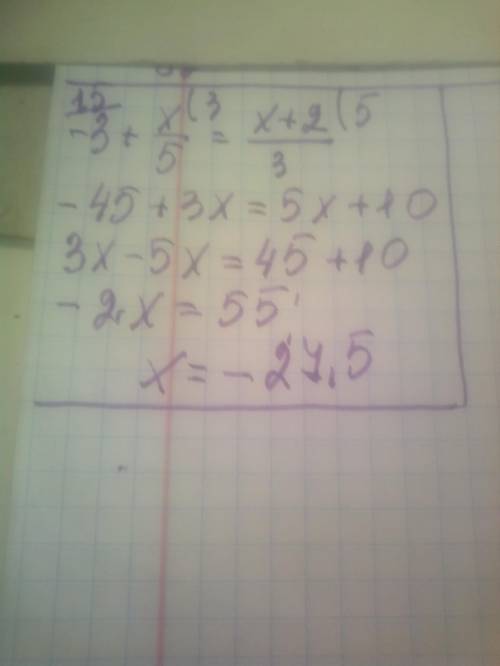 15/ -3 + x/5 (3 = x+2/3 (5
-45 + 3x = 5x + 10
3x - 5x = 45 + 10
-2x = 55
x = -27,5